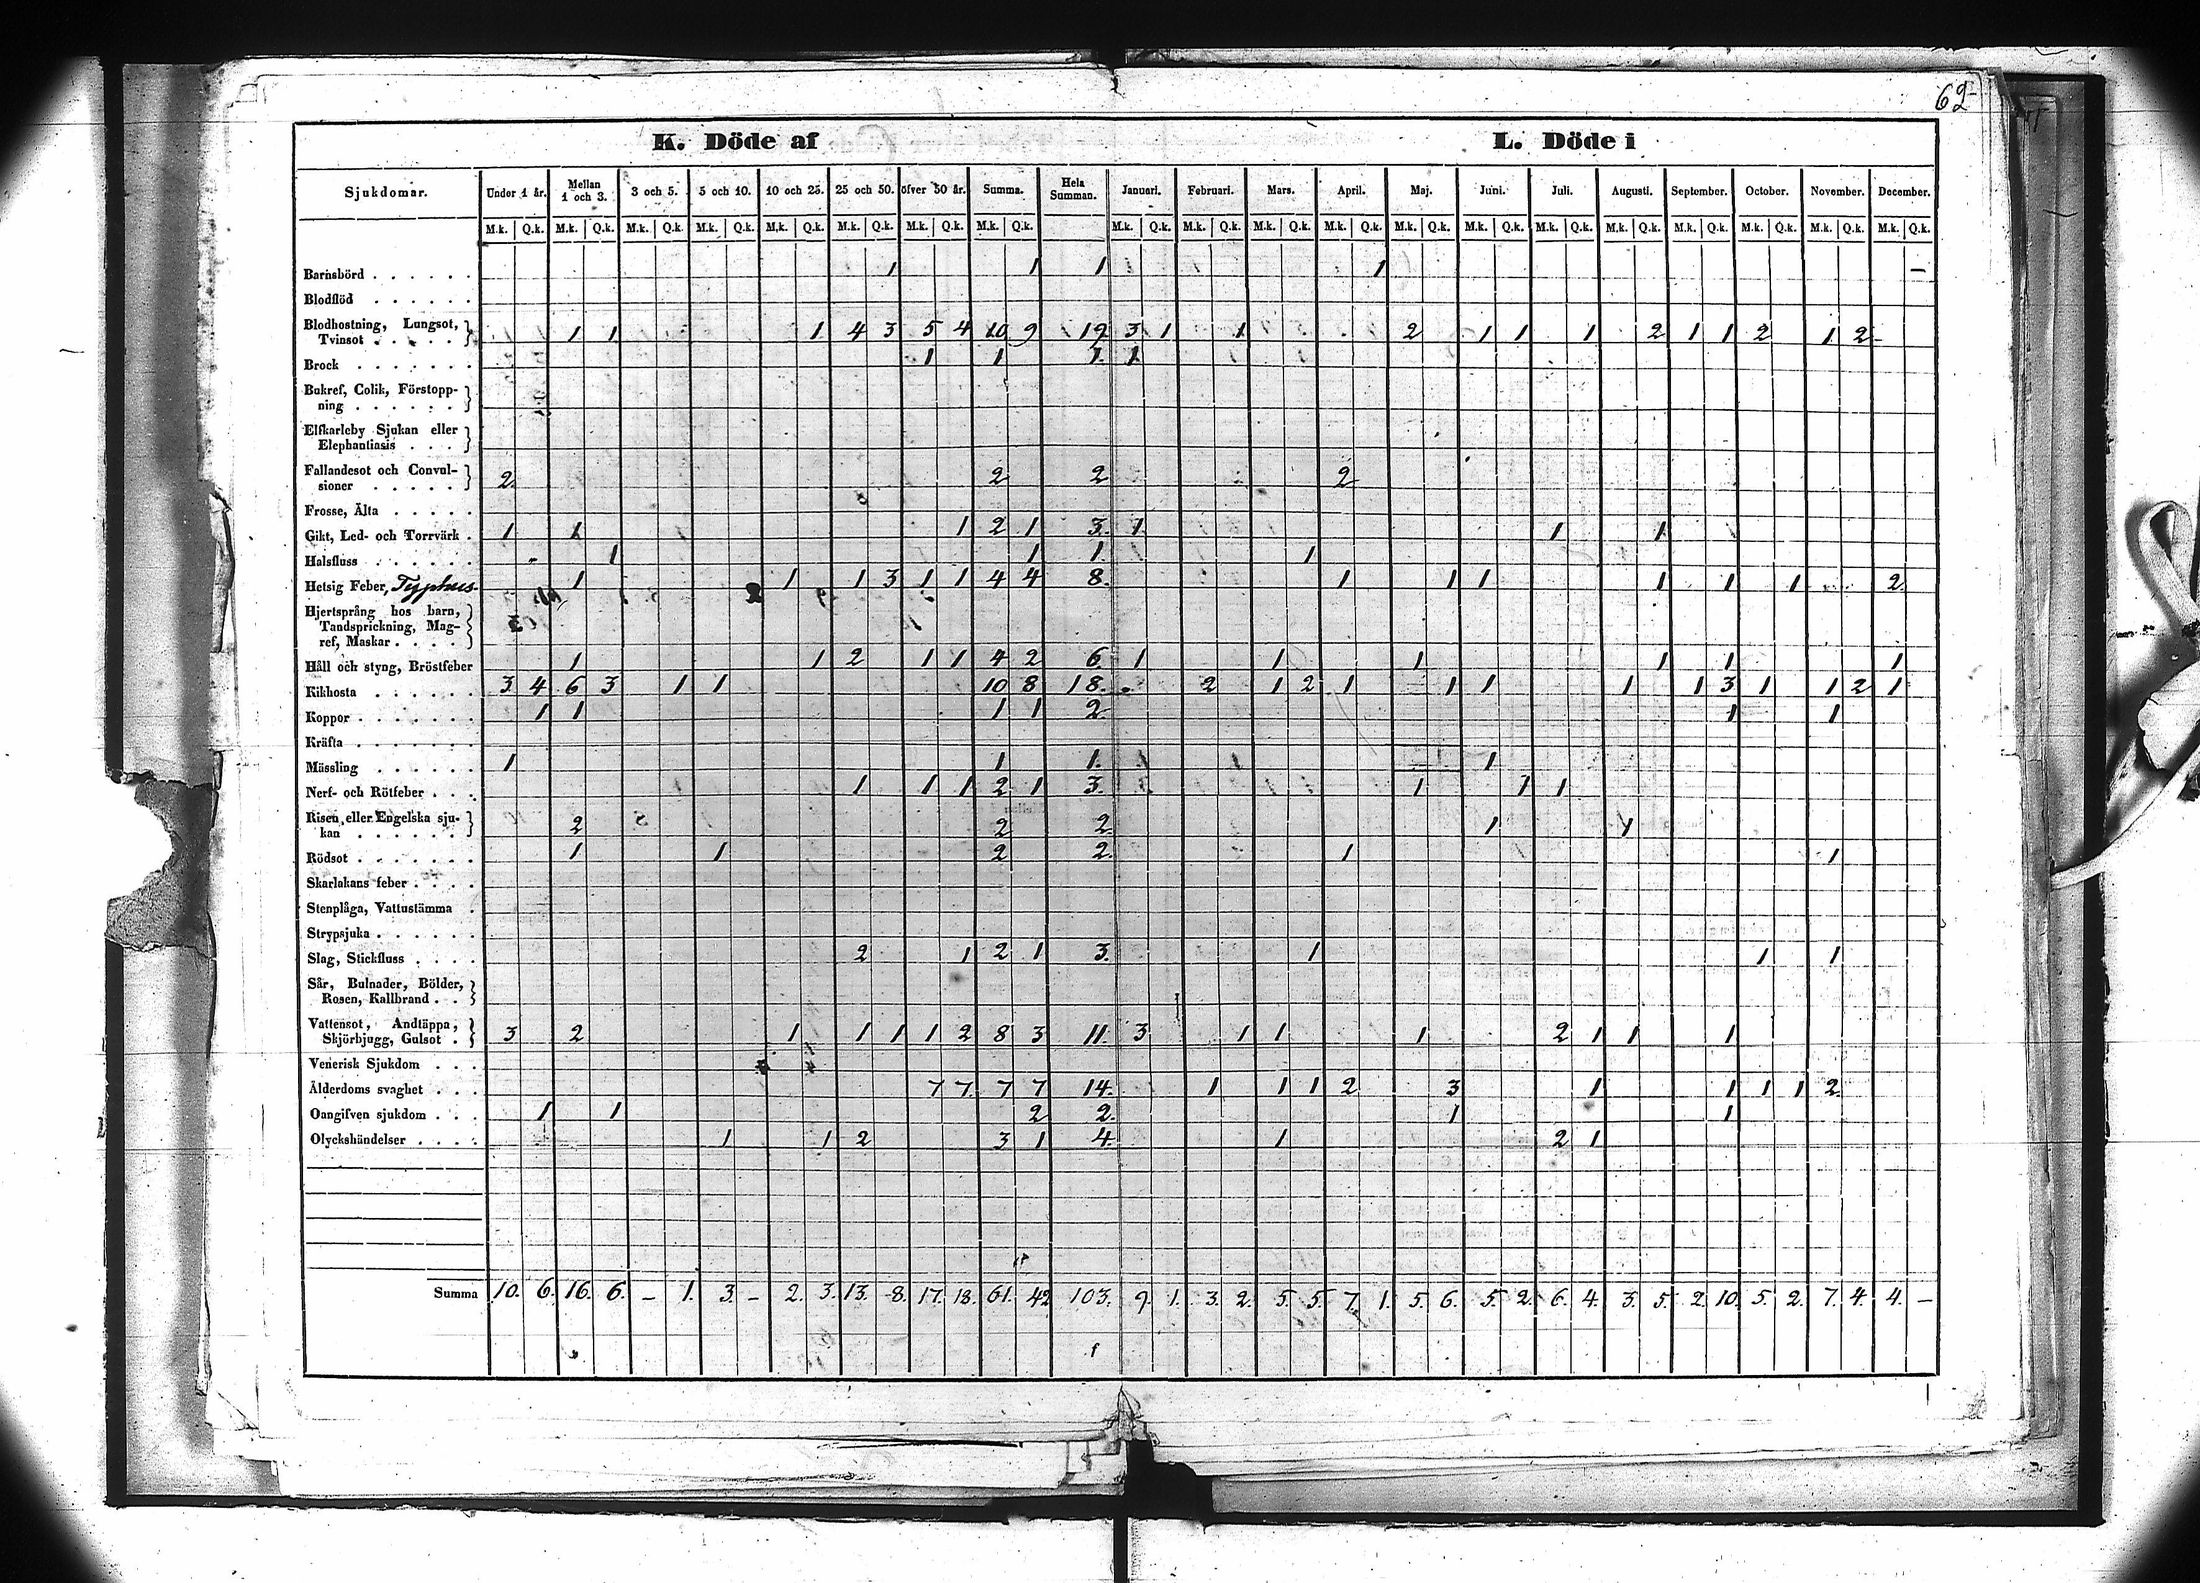 62
K. Döde af L. Döde i
Sjukdomar. Under 1 år. Mellan 1 och 3. 3 och 5. 5 och 10. 10 och 25. 25 och 50. öfver 50 år. Summa. Hela Summan. Januari. Februari. Mars. April. Maj. Juni. Juli. Augusti. September. October. November. December.
M.k. Q.k. M.k. Q.k. M.k. Q.k. M.k. Q.k. M.k. Q.k. M.k. Q.k. M.k. Q.k. M.k. Q.k. M.k. Q.k. M.k. Q.k. M.k. Q.k. M.k. Q.k. M.k. Q.k. M.k. Q.k. M.k. Q.k. M.k. Q.k. M.k. Q.k. M.k. Q.k. M.k. Q.k. M.k. Q.k.
Barnsbörd . . . . . . 1 1 1 1 –
Blodflöd . . . . . .
Blodhostning, Lungsot,
Tvinsot . . . . . 1 1 1 4 3 5 4 10 9 19 3 1 1 2 1 1 1 2 1 1 2 1 2
Brock . . . . . . . 1 1 1. 1
Bukref, Colik, Förstopp-
ning . . . . . .
Elfkarleby Sjukan eller
Elephantiasis . . .
Fallandesot och Convul-
sioner . . . . . 2. 2 2 2
Frosse, Älta . . . . .
Gikt, Led- och Torrvärk . 1 1 1 2 1 3. 1 1 1
Halsfluss . . . . . . 1 1 1. 1
Hetsig Feber, Typphus. 1 1 1 3 1 1 4 4 8. 1 1 1 1 1 1 2
Hjertsprång hos barn,
Tandsprickning, Mag-
ref, Maskar . . . .
Håll och styng, Bröstfeber 1 1 2 1 1 4 2 6. 1 1 1 1 1 1
Kikhosta . . . . . . 3 4 6 3 1 1 10 8 18. 2 1 2 1 1 1 1 1 3 1 1 2 1
Koppor . . . . . . . 1 1 1 1 2. 1 1
Kräfta . . . . . . .
Mässling . . . . . . 1 1 1. 1
Nerf- och Rötfeber . . . 1 1 1 2 1 3. 1 1 1
Risen eller Engelska sju-
kan . . . . . . 2 2 2. 1 1
Rödsot . . . . . . . 1 1 2 2. 1 1
Skarlakans feber . . . .
Stenplåga, Vattustämma .
Strypsjuka . . . . . .
Slag, Stickfluss . . . . 2 1 2 1 3. 1 1 1
Sår, Bulnader, Bölder,
Rosen, Kallbrand . .
Vattensot, Andtäppa,
Skjörbjugg, Gulsot . 3 2 1 1 1 1 2 8 3 11. 3 1 1 1 2 1 1 1
Venerisk Sjukdom . . .
Ålderdoms svaghet . . . 7 7. 7 7 14. 1 1 1 2 3 1 1 1 1 2
Oangifven sjukdom . . . 1 1 2 2. 1 1
Olyckshändelser . . . . 1 1 2 3 1 4. 1 2 1
Summa 10. 6. 16. 6. – 1. 3. – 2. 3. 13. 8. 17. 18. 61. 42 103. 9. 1. 3. 2. 5. 5. 7. 1. 5. 6. 5. 2. 6. 4. 3. 5. 2. 10. 5. 2. 7. 4. 4. –